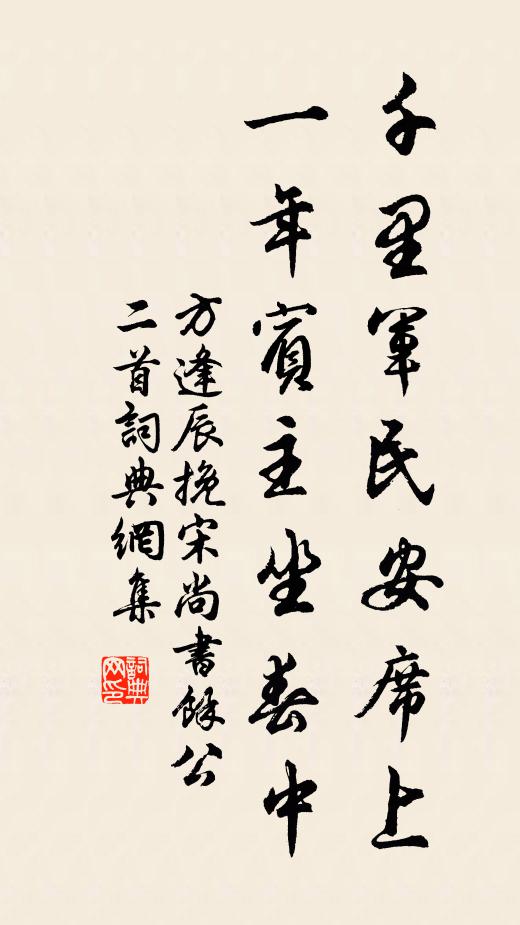 千里軍民安席上
一年賓主坐春中
方逢辰挽宋尚書餘公
二首詞典網集
詞典
网印